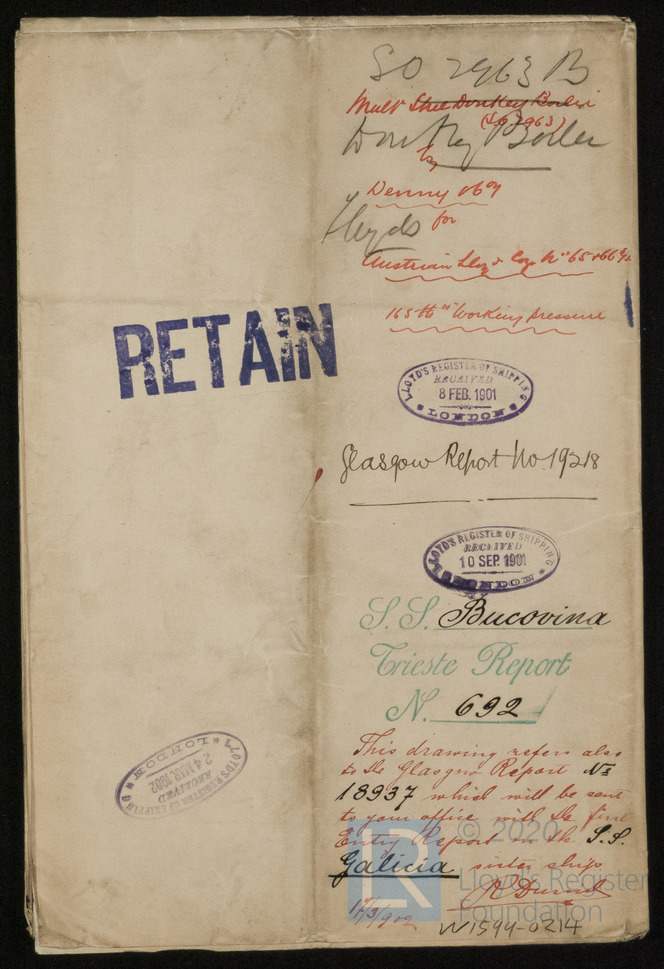 SO 2963 B
Mult Steel Donkey Boiler
(SO 2963)
Donkey Boiler
by
Denny &Co
Lloyds for
Austrian Lloyd Coy Nos 65 & 66
165 lbs Working pressure
RETAIN
LLOYD'S REGISTER OF SHIPPING
RECEIVED
8 FEB. 1901
LONDON
Glasgow Report No. 19218
LLOYD'S REGISTER OF SHIPPING
RECEIVED
10 SEP. 1901
LONDON
S.S. Bucovina
Trieste Report
N. 692
This drawing refers also
to the Glasgow Report No
18937 which will be sent
to your office with the first
Entry Report on the S.S.
Galicia, sister ship
17/3/902
LLOYD'S REGISTER OF SHIPPING
RECEIVED
24 MAR. 1902
LONDON
LR © 2020
Lloyd's Register
Foundation
W1594-0214